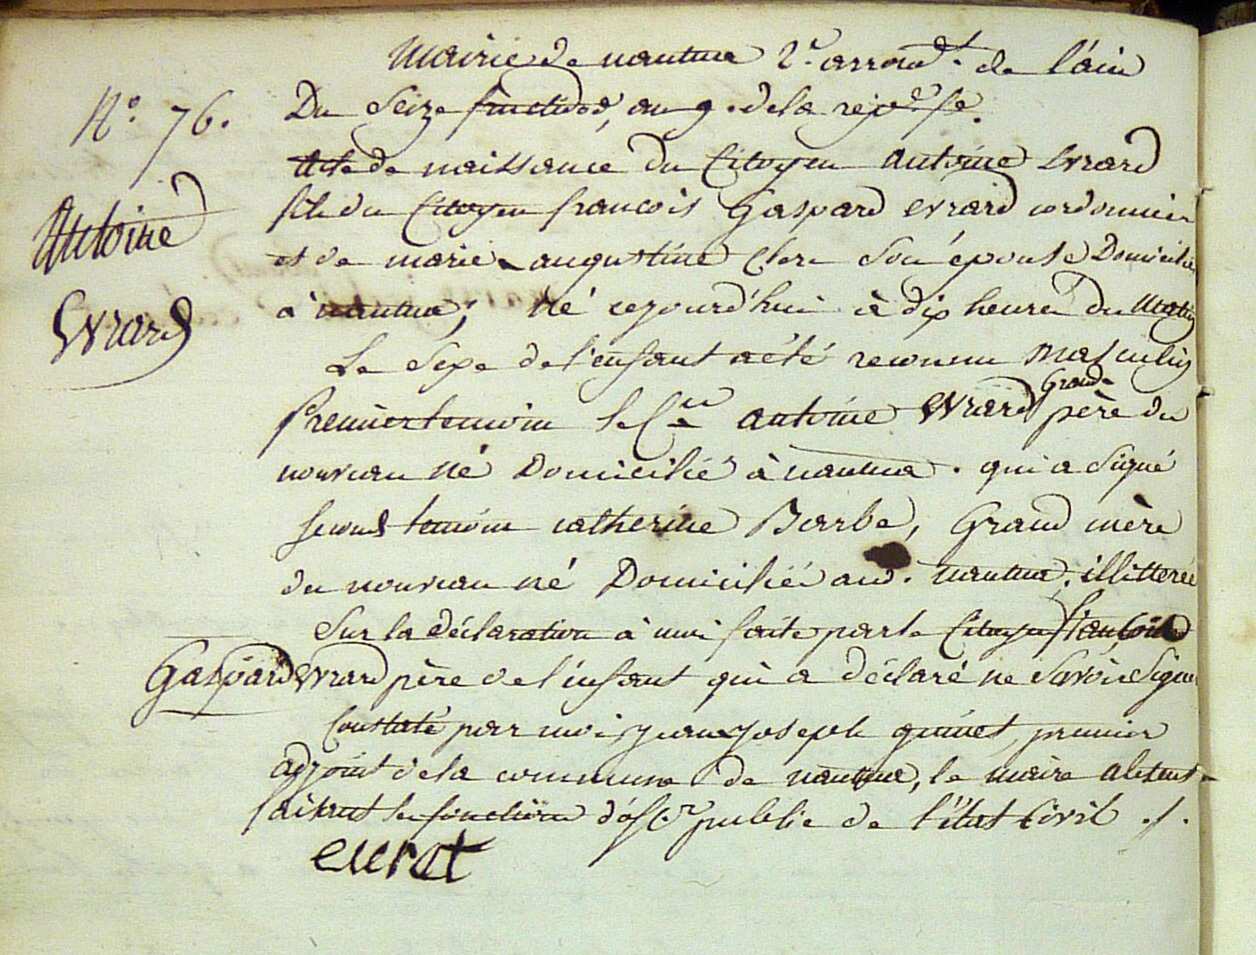 Mairie de nantua 2.e arrond.t de l'ain
N.o 76. Du Seize fructidor, an 9. de la rép.e fse.
Acte de naissance du Citoyen antoine Evrard
Antoine fils du Citoyen francois Gaspard evrard cordonnier
et de marie augustine Clerc son épouse Domiciliés
Evrard à nantua, né cejourd'hui à dix heures du matin
Le Sexe de l'enfant a été reconnu masculin
Premier temoin le C.en antoine evrard Grand père du
nouveau né Domicilié à nantua. qui a signé
second temoin catherine Barbe, Grand mère
du nouveau né Domiciliée aud. nantua. illitterée
Sur la déclaration à moi faite par le Citoyen francois
Gaspard evrard père de l'enfant qui a déclaré ne savoir signer
Constaté par moi jean joseph premier
adjoint de la commune de nantua, le maire absent
faisant les fonctions d'off.er public de l'état Civil ./.